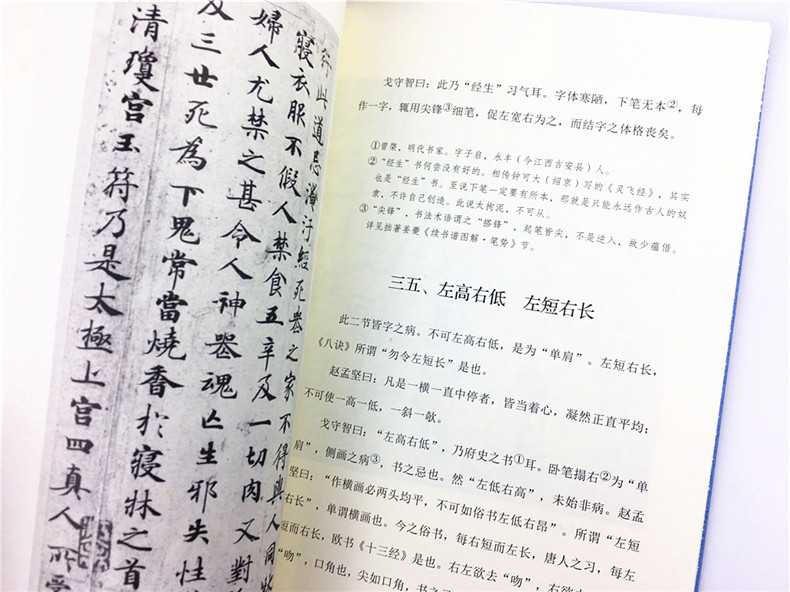 此道忌淹汙經死喪之家不得與人同
寢衣服不假人禁食五辛及一切肉又對
婦人尤禁之甚令人神喪魂亡生邪失性
及三世死為下鬼常當燒香於寢牀之首
清瓊宮玉符乃是太極上宮四真人所受
戈守智曰：此乃“经生”习气耳。字体寒陋，下笔无本②，每
作一字，辄用尖锋③细笔，促左宽右为之，而结字之体格丧矣。
①曾棨，明代书家。字子启，永丰（今江西吉安县）人。
②“经生”书何尝没有好的。相传钟可大（绍京）写的《灵飞经》，其实
也是“经生”书。至说下笔一定要有所本，那就是只能永远作古人的奴
隶，不许自己创造。此说大拘泥，不可从。
③“尖锋”，书法术语谓之“搭锋”，起笔皆尖，不是逆入，故少蕴借。
详见拙著姜夔《续书谱图解·笔势》节。
三五、左高右低　左短右长
此二节皆字之病。不可左高右低，是为“单肩”。左短右长，
《八诀》所谓“勿令左短长”是也。
赵孟坚曰：凡是一横一直中停者，皆当着心，凝然正直平均；
不可使一高一低，一斜一欹。
戈守智曰：“左高右低”，乃府史之书①耳。卧笔搨右②为“单
肩”，侧画之病③，书之忌也。然“左低右高”，未始非病。赵孟
坚曰：“作横画必两头均平，不可如俗书左低右昂”。所谓“左短
右长”，单谓横画也。今之俗书，每右短而左长，唐人之习，每左
短而右长，欧书《十三经》是也。右左欲去“吻”，右欲去
“吻”，口角也，尖如口角，书之